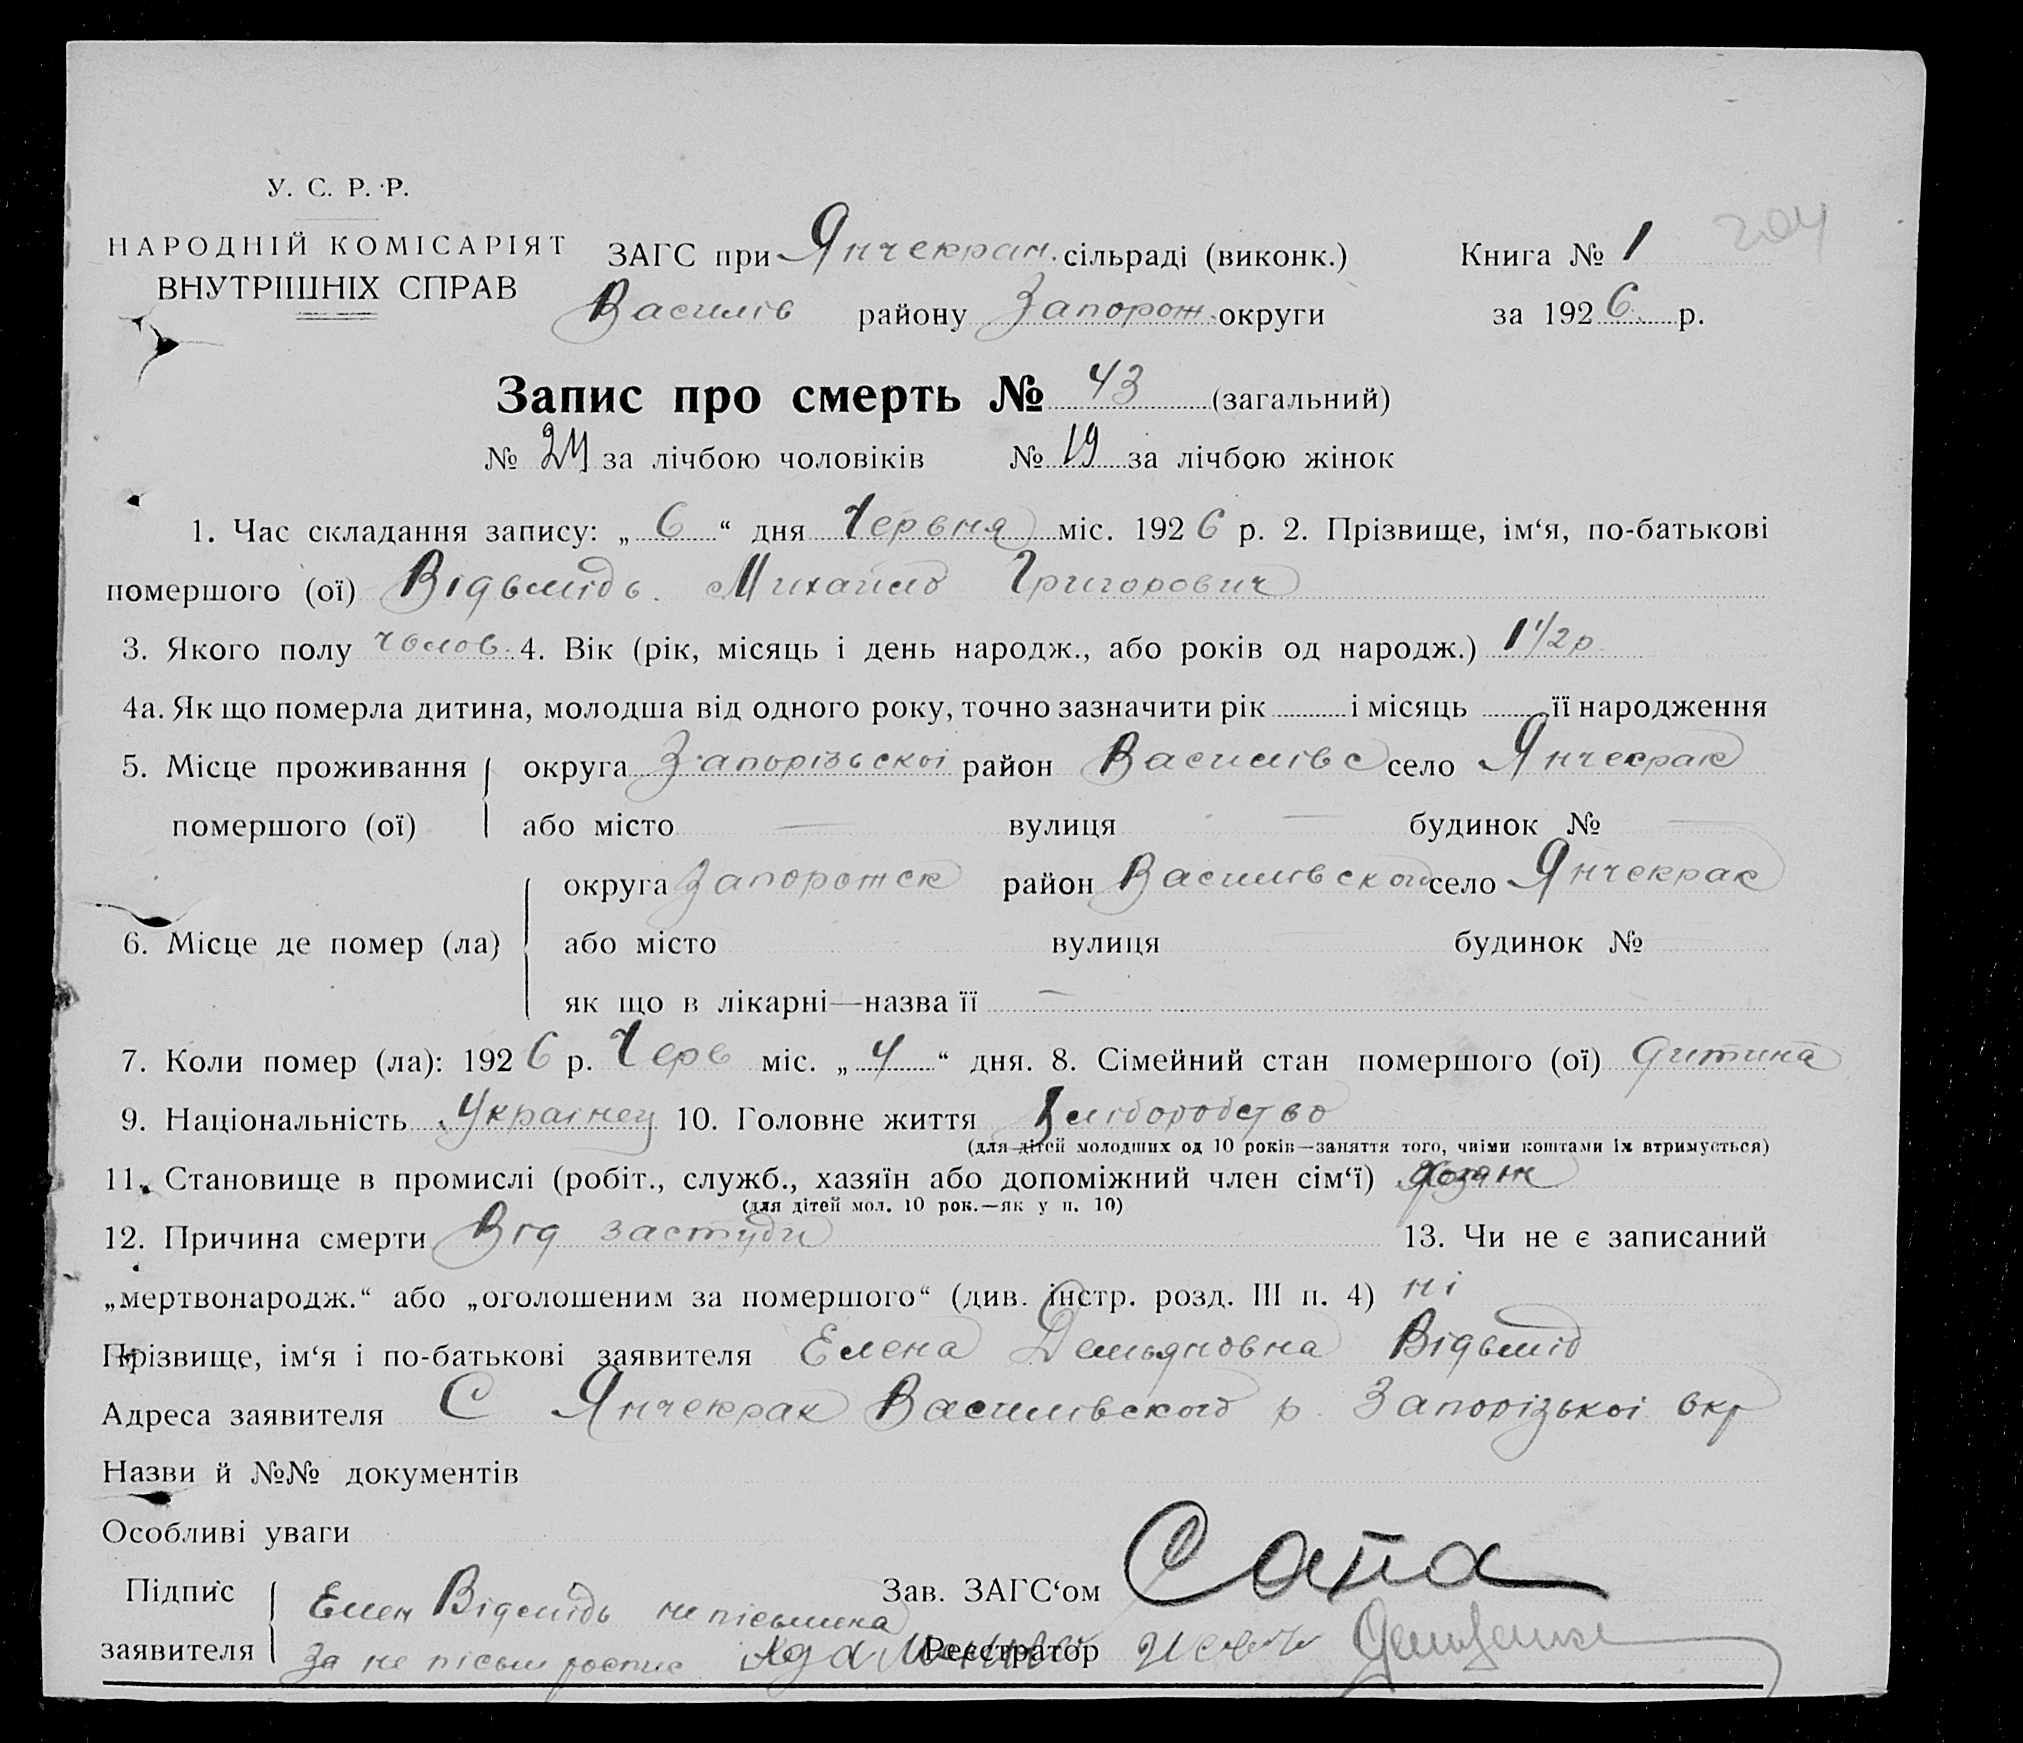 204
У. С. Р. Р.
НАРОДНІЙ КОМІСАРІЯТ
ВНУТРІШНІХ СПРАВ
ЗАГС при Янчекран. сільраді (виконк.) Книга № 1
Василів району Запорож. округи за 1926 р.
Запис про смерть № 43 (загальний)
№ 24 за лічбою чоловіків № 19 за лічбою жінок
1. Час складання запису: „ 6 “ дня Червня міс. 1926 р. 2. Прізвище, ім‘я, по-батькові
помершого (ої) Відьмідь. Михайло Григорович
3. Якого полу чолов. 4. Вік (рік, місяць і день народж., або років од народж.) 1 1/2 р
4а. Як що померла дитина, молодша від одного року, точно зазначити рік і місяць її народження
5. Місце проживання округа Запорізьскої район Василівс село Янчекрак
помершого (ої) або місто — вулиця — будинок № —
округа Запорожск район Василівского село Янчекрак
6. Місце де помер (ла) або місто вулиця будинок №
як що в лікарні—назва її —
7. Коли помер (ла): 1926 р. Черв міс. „ 4 “ дня. 8. Сімейний стан помершого (ої) дитина
9. Національність Українец 10. Головне життя Хліборобство
(для дітей молодших од 10 років—заняття того, чиїми коштами їх втримується)
11. Становище в промислі (робіт., служб., хазяїн або допоміжний член сім‘ї)
(для дітей мол. 10 рок.—як у п. 10)
12. Причина смерти Від застуди 13. Чи не є записаний
„мертвонародж.“ або „оголошеним за помершого“ (див. інстр. розд. III п. 4) ні
Прізвище, ім‘я і по-батькові заявителя Елена Демьяновна Відьмід
Адреса заявителя С Янчекрак Василівского р. Запорізької окр
Назви й №№ документів
Особливі уваги
Підпис Елен Відмідь не пісьмена Зав. ЗАГС‘ом Сапа
заявителя За не пісьм роспис Реєстратор